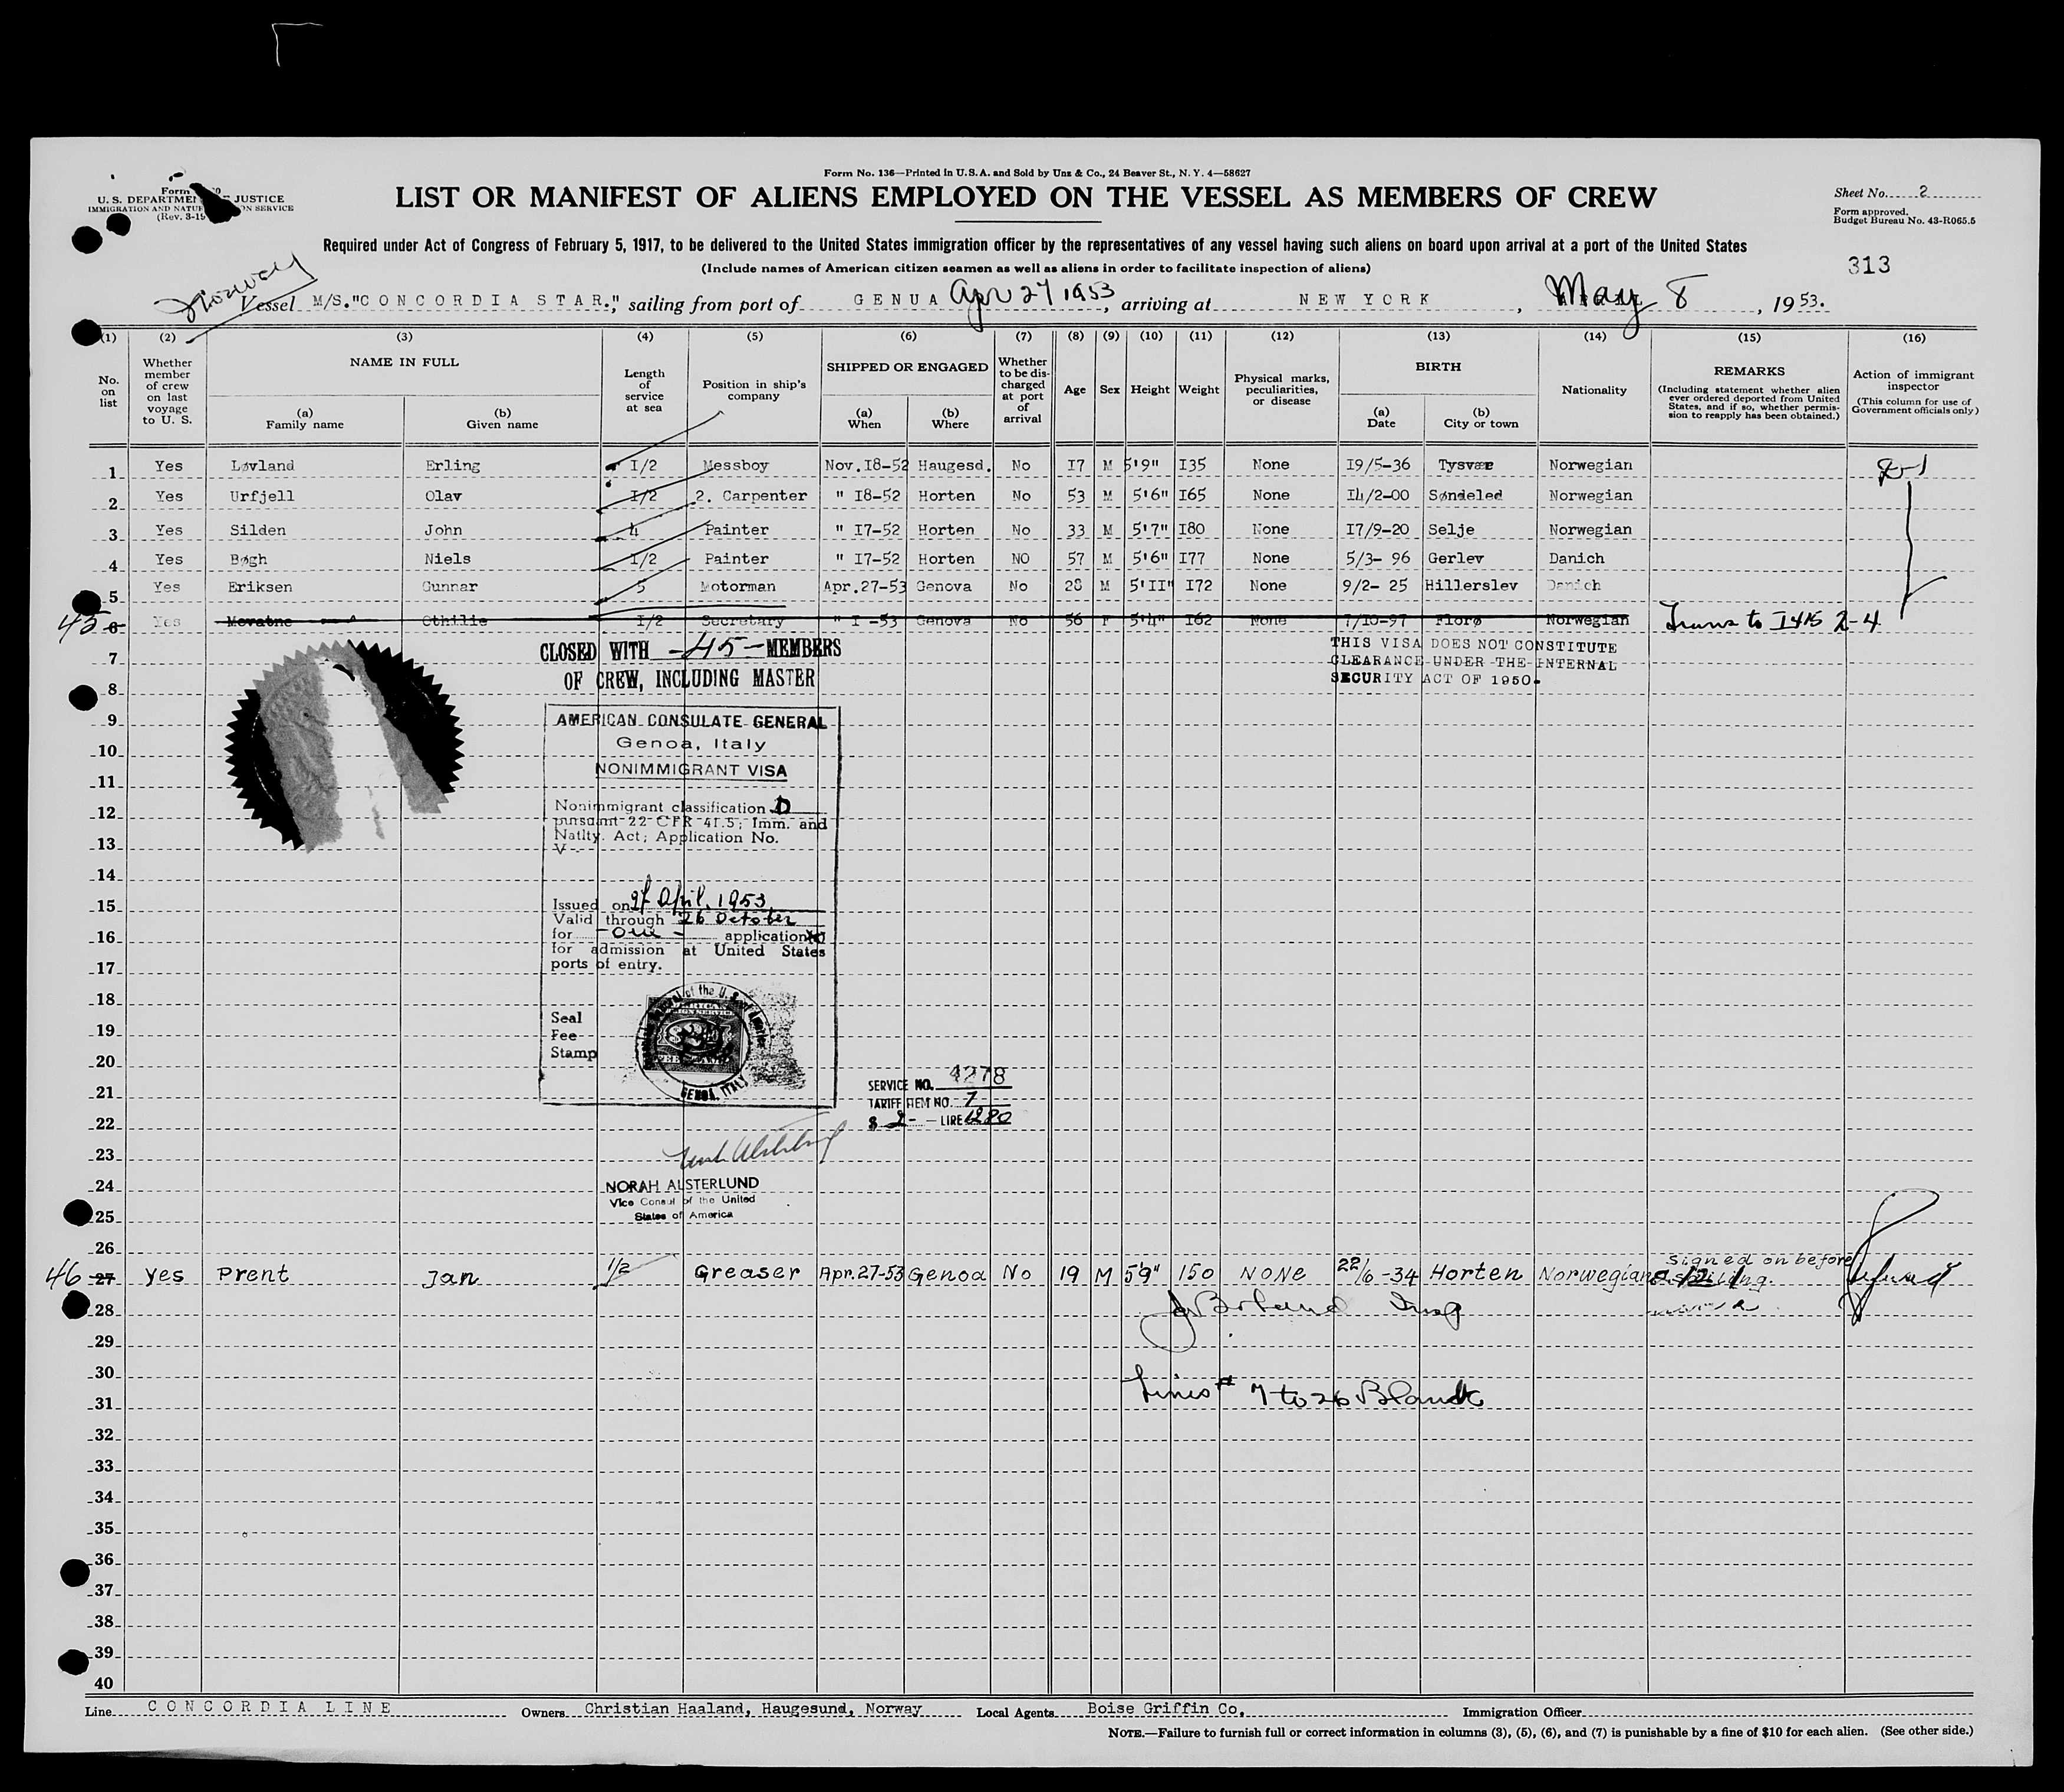 Form No. 136—Printed in U.S.A. and Sold by Unz & Co., 24 Beaver St., N. Y. 4—58627
U. S. DEPARTMENT JUSTICE
IMMIGRATION AND SERVICE
(Rev. 3-19
LIST OR MANIFEST OF ALIENS EMPLOYED ON THE VESSEL AS MEMBERS OF CREW
Sheet No. 2
Form approved.
Budget Bureau No. 43-R065.5
Required under Act of Congress of February 5, 1917, to be delivered to the United States immigration officer by the representatives of any vessel having such aliens on board upon arrival at a port of the United States
(Include names of American citizen seamen as well as aliens in order to facilitate inspection of aliens)
313
Norway
Vessel M/S."CONCORDIA STAR.", sailing from port of GENUA Apr 27 1953, arriving at NEW YORK, May 8, 1953.
(1) (2) (3) (4) (5) (6) (7) (8) (9) (10) (11) (12) (13) (14) (15) (16)
No. on list
Whether member of crew on last voyage to U. S.
NAME IN FULL
(a) Family name
(b) Given name
Length of service at sea
Position in ship's company
SHIPPED OR ENGAGED
(a) When
(b) Where
Whether to be discharged at port of arrival
Age
Sex
Height
Weight
Physical marks, peculiarities, or disease
BIRTH
(a) Date
(b) City or town
Nationality
REMARKS
(Including statement whether alien ever ordered deported from United States, and if so, whether permission to reapply has been obtained.)
Action of immigrant inspector
(This column for use of Government officials only)
1 Yes Løvland Erling I/2 Messboy Nov.I8-52 Haugesd. No I7 M 5'9" I35 None I9/5-36 Tysvær Norwegian
2 Yes Urfjell Olav I/2 2. Carpenter " I8-52 Horten No 53 M 5'6" I65 None I4/2-00 Søndeled Norwegian
3 Yes Silden John 4 Painter " I7-52 Horten No 33 M 5'7" I80 None I7/9-20 Selje Norwegian
4 Yes Bøgh Niels I/2 Painter " I7-52 Horten NO 57 M 5'6" I77 None 5/3- 96 Gerlev Danich
5 Yes Eriksen Gunnar 5 Motorman Apr.27-53 Genova No 28 M 5'II" I72 None 9/2- 25 Hillerslev Danich
45 6 Yes Movatne Othilie I/2 Secretary " I -53 Genova No 56 F 5'4" I62 None 7/10-97 Florø Norwegian Trans to I 415 2-4
CLOSED WITH -45- MEMBERS
OF CREW, INCLUDING MASTER
THIS VISA DOES NOT CONSTITUTE
CLEARANCE UNDER THE INTERNAL
SECURITY ACT OF 1950.
7
8
9
AMERICAN CONSULATE GENERAL
Genoa, Italy
10
NONIMMIGRANT VISA
11
Nonimmigrant classification D
12
pursuant 22 CFR 41.5; Imm. and
Natlty. Act; Application No.
13
V -
14
15
Issued on 27 April, 1953
Valid through 26 October
16
for - One - application
for admission at United States
17
ports of entry.
18
19
Seal
Fee
Stamp
GENOA, ITALY
20
21
SERVICE NO. 4278
TARIFF ITEM NO. 7
22
$ 2- — LIRE 1280
23
24
NORAH ALSTERLUND
Vice Consul of the United
States of America
25
26
46 27 Yes Prent Jan 1/2 Greaser Apr.27-53 Genoa No 19 M 5'9" 150 NONE 22/6 -34 Horten Norwegian signed on before
28
29
30
Lines # 7 to 26 Blank
31
32
33
34
35
36
37
38
39
40
Line CONCORDIA LINE Owners Christian Haaland, Haugesund, Norway Local Agents Boise Griffin Co, Immigration Officer
NOTE.—Failure to furnish full or correct information in columns (3), (5), (6), and (7) is punishable by a fine of $10 for each alien. (See other side.)